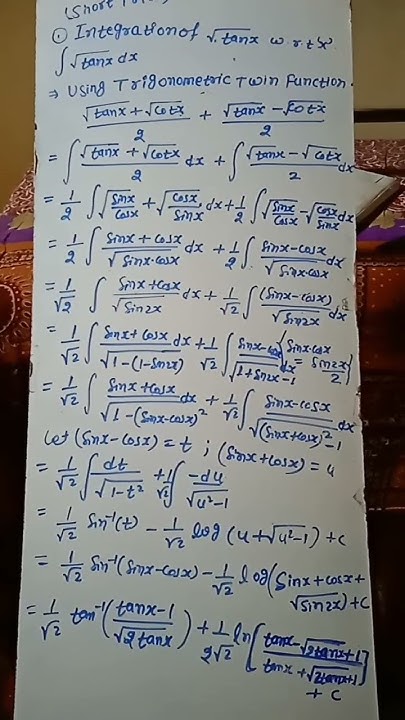 (Short
① Integration of √tanx w.r.t 'x'
∫√tanx dx
⇒ Using Trigonometric Twin Function.
(√tanx + √cotx)/2 + (√tanx − √cotx)/2
= ∫(√tanx + √cotx)/2 dx + ∫(√tanx − √cotx)/2 dx
= 1/2 ∫√(sinx/cosx) + √(cosx/sinx) dx + 1/2 ∫√(sinx/cosx) − √(cosx/sinx) dx
= 1/2 ∫(sinx + cosx)/√(sinx·cosx) dx + 1/2 ∫(sinx − cosx)/√(sinx·cosx) dx
= 1/√2 ∫(sinx + cosx)/√(sin2x) dx + 1/√2 ∫(sinx − cosx)/√(sin2x) dx
= 1/√2 ∫(sinx + cosx)/√(1−(1−sin2x)) dx + 1/√2 ∫(sinx − cosx)/√(1+sin2x−1) dx (sinx·cosx = sin2x/2)
= 1/√2 ∫(sinx + cosx)/√(1−(sinx−cosx)²) dx + 1/√2 ∫(sinx − cosx)/√((sinx+cosx)²−1) dx
let (sinx − cosx) = t ; (sinx + cosx) = u
= 1/√2 ∫dt/√(1−t²) + 1/√2 ∫−du/√(u²−1)
= 1/√2 sin⁻¹(t) − 1/√2 log(u+√(u²−1)) + c
= 1/√2 sin⁻¹(sinx − cosx) − 1/√2 log(sinx + cosx + √(sin2x)) + c
= 1/√2 tan⁻¹((tanx − 1)/√(2tanx)) + 1/(2√2) ln[(tanx − √(2tanx) + 1)/(tanx + √(2tanx) + 1)] + c